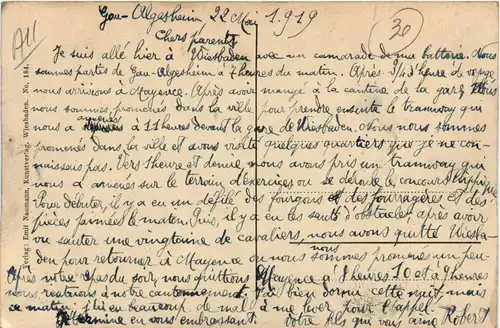 A11
30
Gau-Algesheim, 22 Mai 1919
Chers parents
Je suis allé hier à Wiesbaden avec un camarade de ma batterie. Nous
sommes partis de Gau-Algesheim à 7 heures du matin. Après 3/4 d'heure de voyage
nous arrivions à Mayence. Après avoir mangé à la cantine de la gare nous
nous sommes promenés dans la ville pour prendre ensuite le tramway qui
nous a amenés à 11 heures devant la gare de Wiesbaden. Nous nous sommes
promenés dans la ville et avons visité quelques quartiers que je ne con-
naissais pas. Vers 1 heure et demie, nous avons pris un tramway qui
nous a amenés sur le terrain d'exercices où se déroule le concours hippique
Pour débuter, il y a eu un défilé des fourgons et des fourragères et des
pièces primées le matin. Puis, il y a eu les sauts d'obstacles, après avoir
vu sauter une vingtaine de cavaliers, nous avons quitté Wiesba-
den pour retourner à Mayence où nous nous sommes promenés un peu
Après notre repas du soir, nous quittons Mayence à 8 heures 10 et à 9 heures
nous réintégrons à notre cantonnement. J'ai bien dormi cette nuit, mais
ce matin, j'ai eu beaucoup de mal à me lever pour l'appel.
Je termine en vous embrassant. Votre fils qui vous aime Robert
Verlag: Emil Neumann, Kunstverlag, Wiesbaden. No. 184.